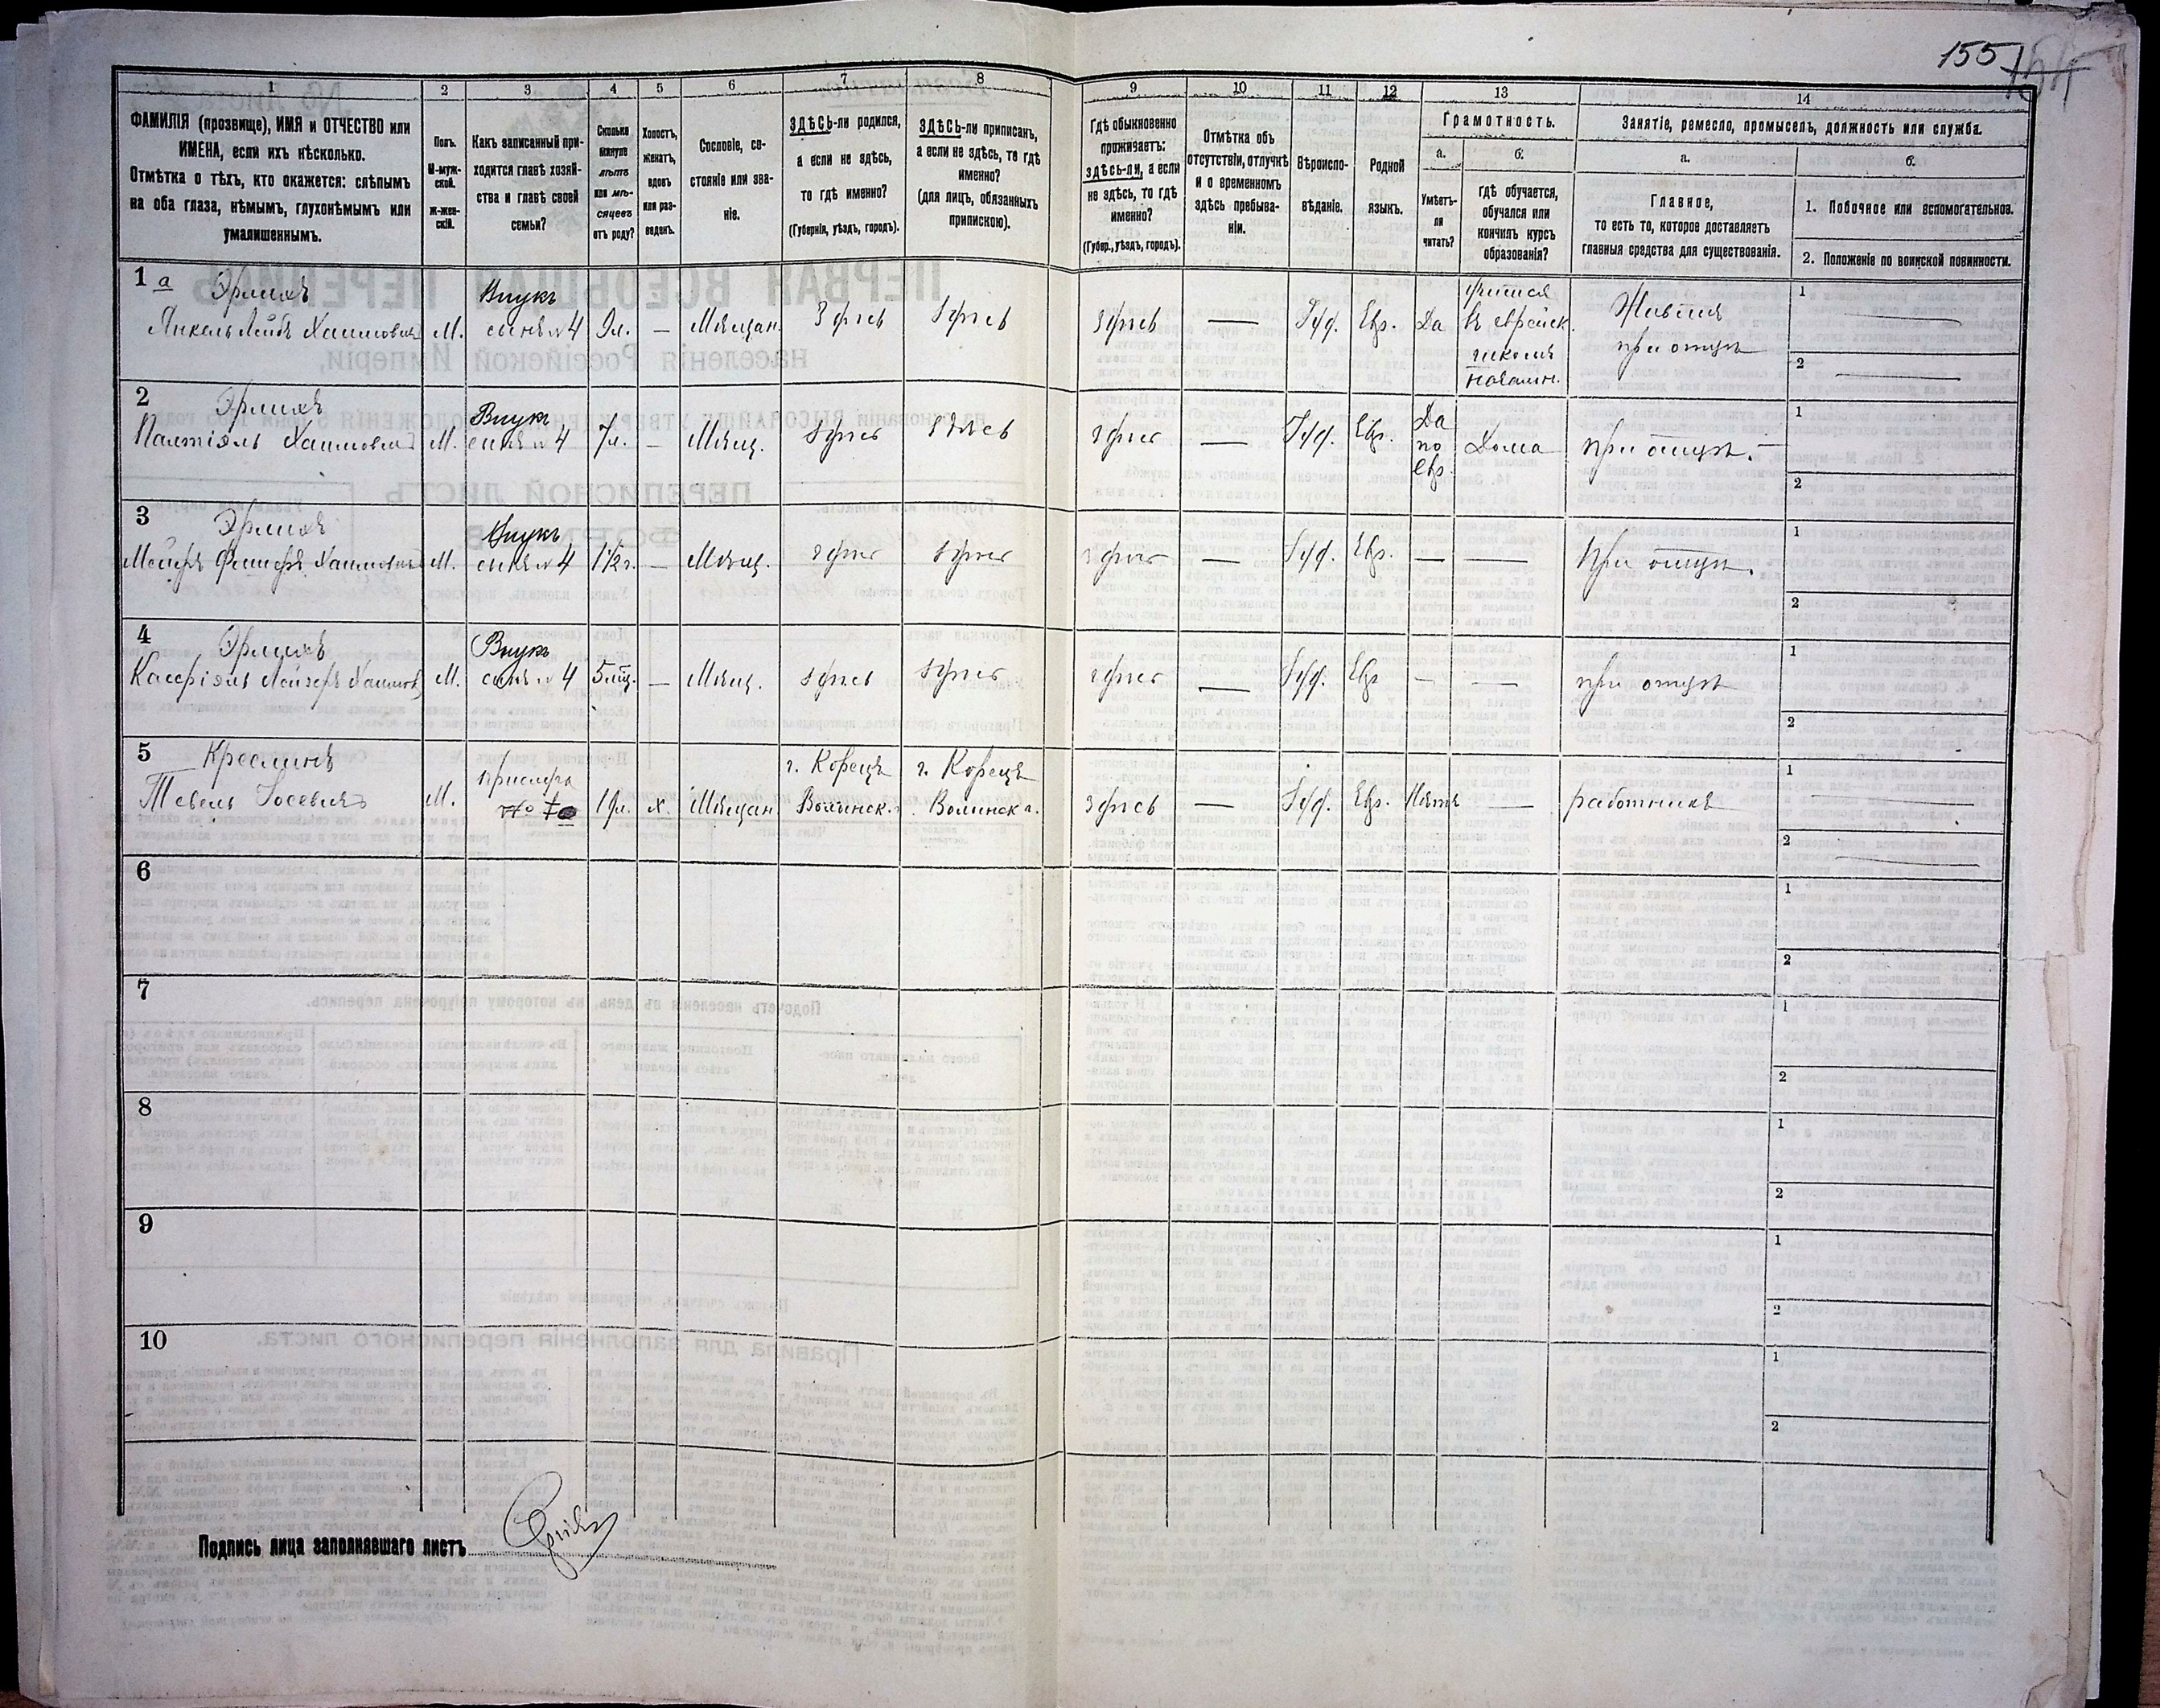 155
154
1
2
3
4
5
6
7
8
9
10
11
12
13
14
ФАМИЛІЯ (прозвище), ИМЯ и ОТЧЕСТВО или
ИМЕНА, если ихъ нѣсколько.
Отмѣтка о тѣхъ, кто окажется: слѣпымъ
на оба глаза, нѣмымъ, глухонѣмымъ или
умалишеннымъ.
Полъ.
М-муж-
ской.
Ж-жен-
скій.
Какъ записанный при-
ходится главѣ хозяй-
ства и главѣ своей
семьи?
Сколько
минуло
лѣтъ
или мѣ-
сяцевъ
отъ роду?
Холостъ,
женатъ,
вдовъ
или раз-
веденъ.
Сословіе, со-
стояніе или зва-
ніе.
ЗДѢСЬ-ли родился,
а если не здѣсь,
то гдѣ именно?
(Губернія, уѣздъ, городъ).
ЗДѢСЬ-ли приписанъ,
а если не здѣсь, то гдѣ
именно?
(для лицъ, обязанныхъ
припискою).
Гдѣ обыкновенно
проживаетъ:
здѣсь-ли, а если
не здѣсь, то гдѣ
именно?
(Губер., уѣздъ, городъ).
Отмѣтка объ
отсутствіи, отлучкѣ
и о временномъ
здѣсь пребыва-
ніи.
Вѣроиспо-
вѣданіе.
Родной
языкъ.
Грамотность.
а.
Умѣетъ-
ли
читать?
б.
гдѣ обучается,
обучался или
кончилъ курсъ
образованія?
Занятіе, ремесло, промыселъ, должность или служба.
а.
Главное,
то есть то, которое доставляетъ
главныя средства для существованія.
б.
1. Побочное или вспомогательное.
2. Положеніе по воинской повинности.
1 а Эрлихъ
Янкель Лейбъ Хаимовичъ
М.
Внукъ
сынъ № 4
9 л.
—
Мѣщан.
Здѣсь
Здѣсь
Здѣсь
—
Іуд.
Евр.
Да
учится
въ еврейск.
школѣ
Живетъ
при отцѣ
1
2
2 Эрлихъ
Хаимовичъ
М.
Внукъ
сынъ № 4
7 л.
—
Мѣщ.
Здѣсь
Здѣсь
Здѣсь
—
Іуд.
Евр.
Да
по
евр.
Дома
при отцѣ.
1
2
3 Эрлихъ
Мейеръ Фишеръ Хаимовичъ
М.
Внукъ
сынъ № 4
1½ г.
—
Мѣщ.
Здѣсь
Здѣсь
Здѣсь
—
Іуд.
Евр.
—
—
При отцѣ.
1
2
4 Эрлихъ
Касріэль Лейзеръ Хаимов.
М.
Внукъ
сынъ № 4
5 мѣс.
—
Мѣщ.
Здѣсь
Здѣсь
Здѣсь
—
Іуд.
Евр.
—
—
при отцѣ
1
2
5 Креслинъ
Тевель Іосевичъ
М.
прислуга
19 л.
х.
Мѣщан.
г. Корецъ
Волынск. г.
г. Корецъ
Волинск г.
Здѣсь
—
Іуд.
Евр.
Нѣтъ
—
работникъ
1
2
6
1
2
7
1
2
8
1
2
9
1
2
10
1
2
Подпись лица заполнявшаго листъ